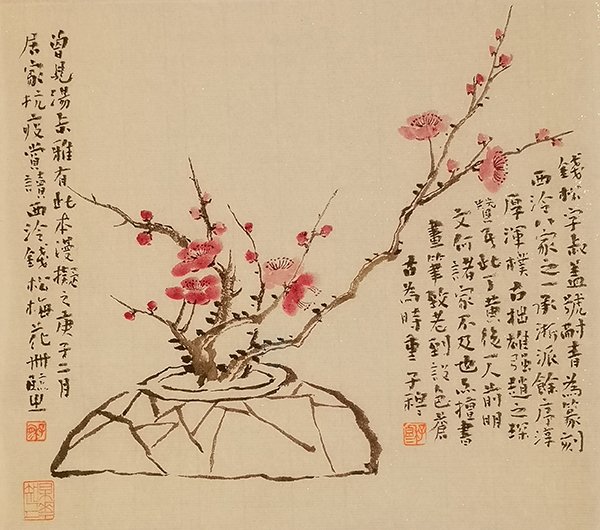 錢松字叔盖號耐青為篆刻
西泠八家之一承浙派餘序淳
厚渾樸古拙雄強趙之琛
此丁黄後一人前明
文何諸家不及也亦擅書
畫筆致老到設色蒼
古為時重子
曾見湯雅有此本漫擬之庚子二月
居家抗疫賞讀西泠錢松梅花冊臨